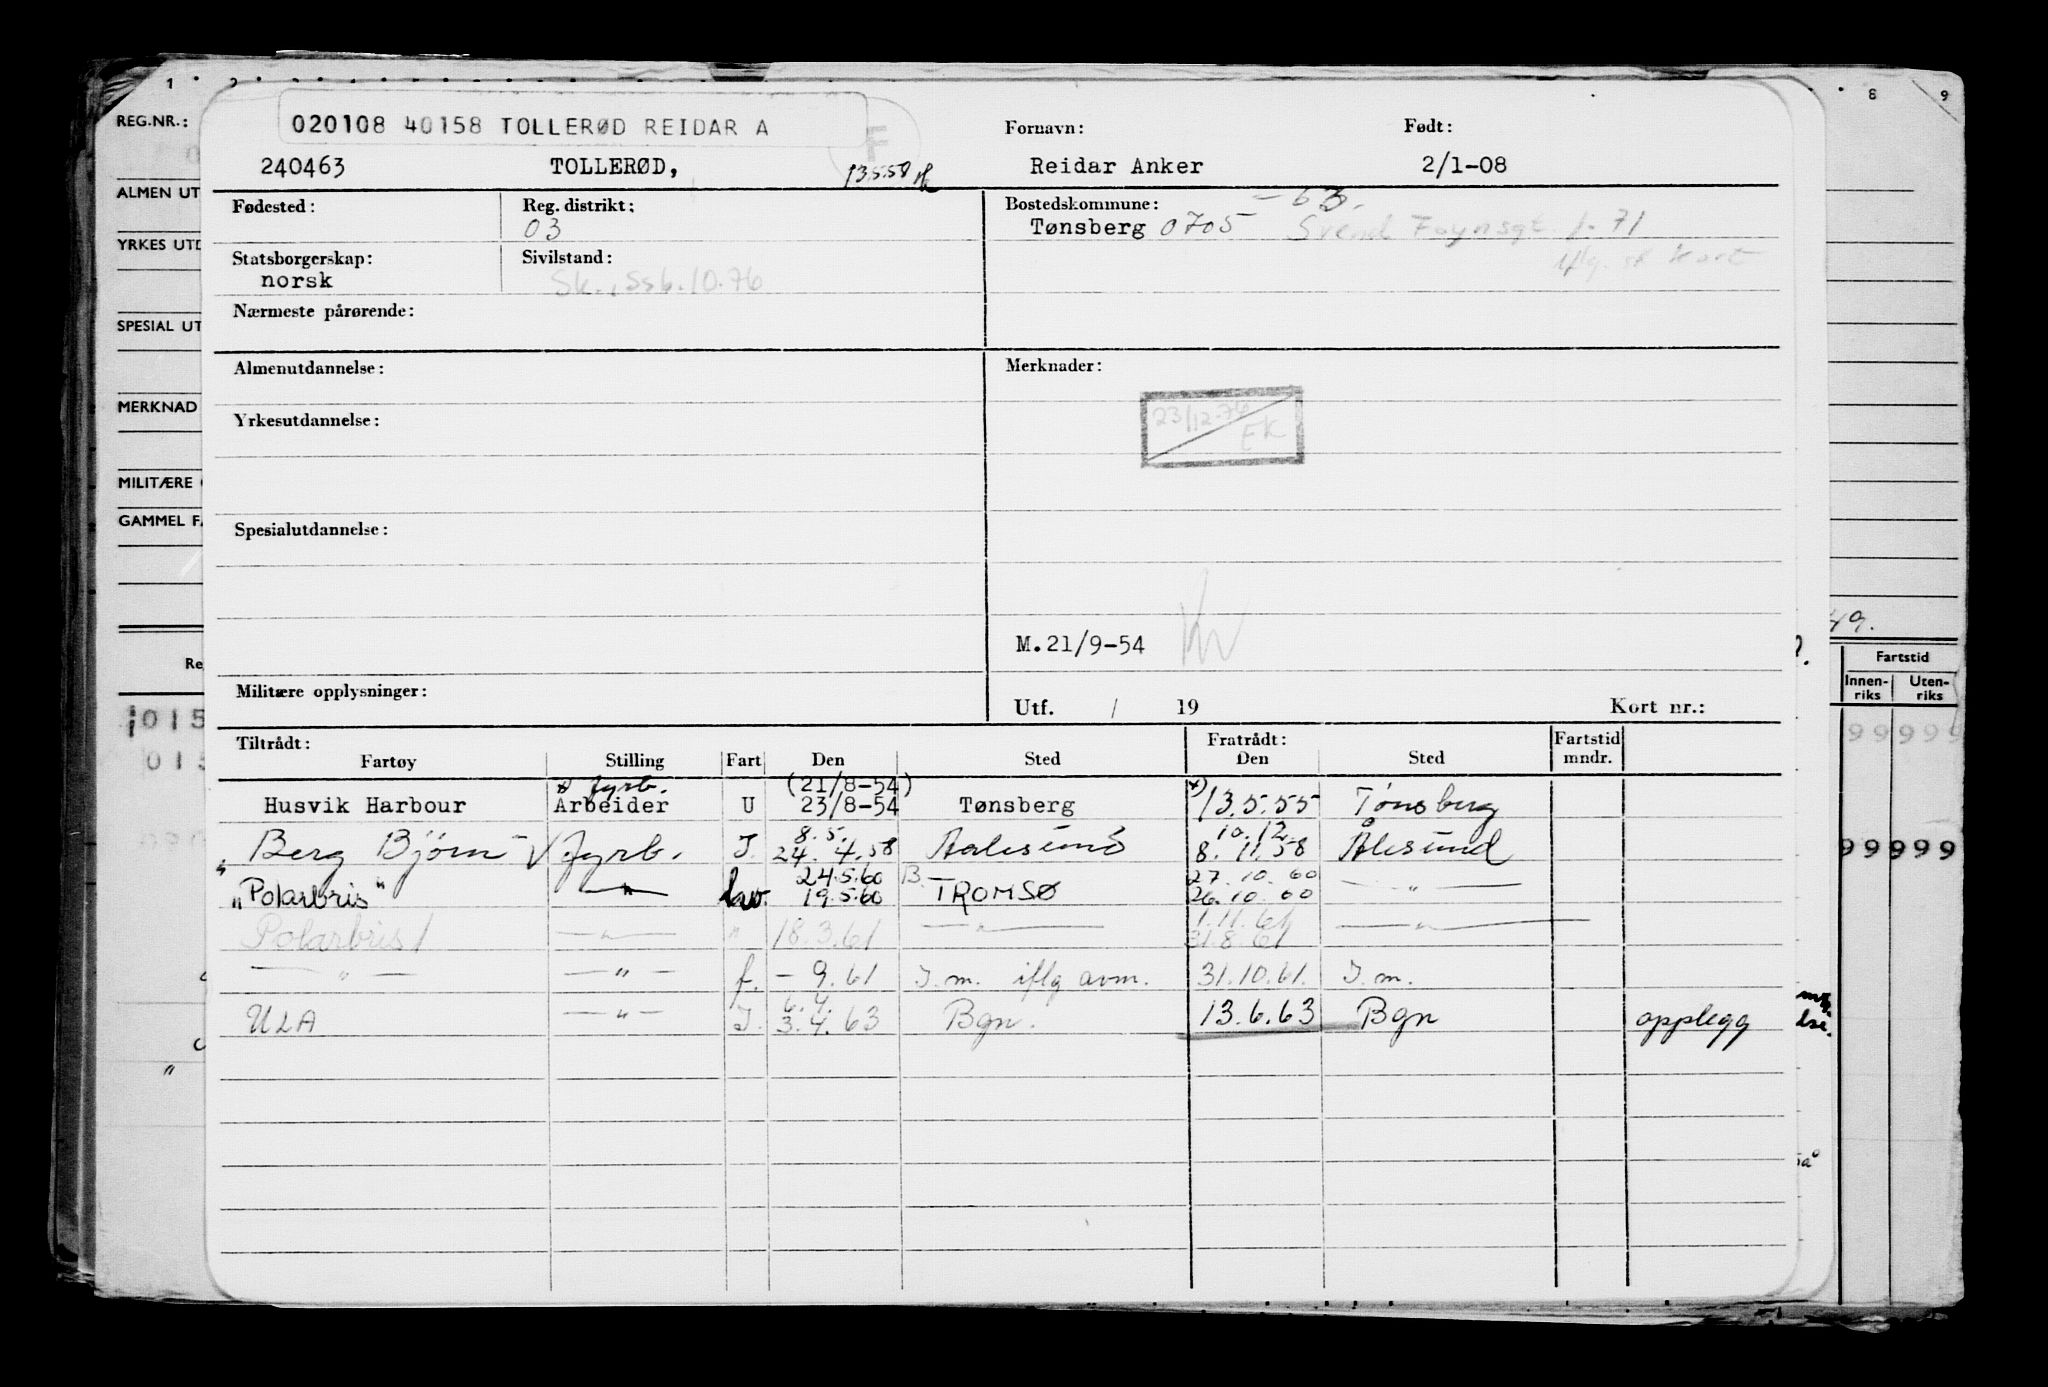 1 2 8 9
REG.NR.:
ALMEN UT
YRKES UTD
SPECIAL UT
MERKNAD
MILITÆRE
GAMMEL F
020108 40158 TOLLERØD REIDAR A F Fornavn: Født:
240463 TOLLERØD, 13.5.58 Reidar Anker 2/1-08
Fødested: Reg. distrikt: 03 Bostedskommune: - 63.
Tønsberg 0705 Svend Foynsgt. 71
iflg. sk kort
Statsborgerskap: norsk Sivilstand: Sk., ssb. 10.76
Nærmeste pårørende:
Almenutdannelse: Merknader:
23/12-76 EK
Yrkesutdannelse:
Spesialutdannelse:
M.21/9-54
Militære opplysninger: Utf. / 19 Kort nr.:
Tiltrådt: Fratrådt: Fartstid
Fartøy Stilling Fart Den Sted Den Sted mndr.
x) fyrb. (21/8-54)
Husvik Harbour Arbeider U 23/8-54 Tønsberg x) 13.5.55 Tønsberg
8.5. 10.12.
" Berg Bjørn √ fyrb. I. 24.4.58 Aalesund 8.11.58 Ålesund
24.5.60 B. 27.10.60
"Polarbris" — " — 19.5.60 TROMSØ 26.10.60 — " —
1.11.61
Polarbris — " — " 18.3.61 — " — 31.8.61 — " —
— " — — " — f. - 9.61 I.m. iflg avm. 31.10.61. I.m.
6.4.
ULA — " — I. 3.4.63 Bgn. 13.6.63 Bgn opplegg
49.
Fartstid
Innen-riks Uten-riks
015
015
99999
99999